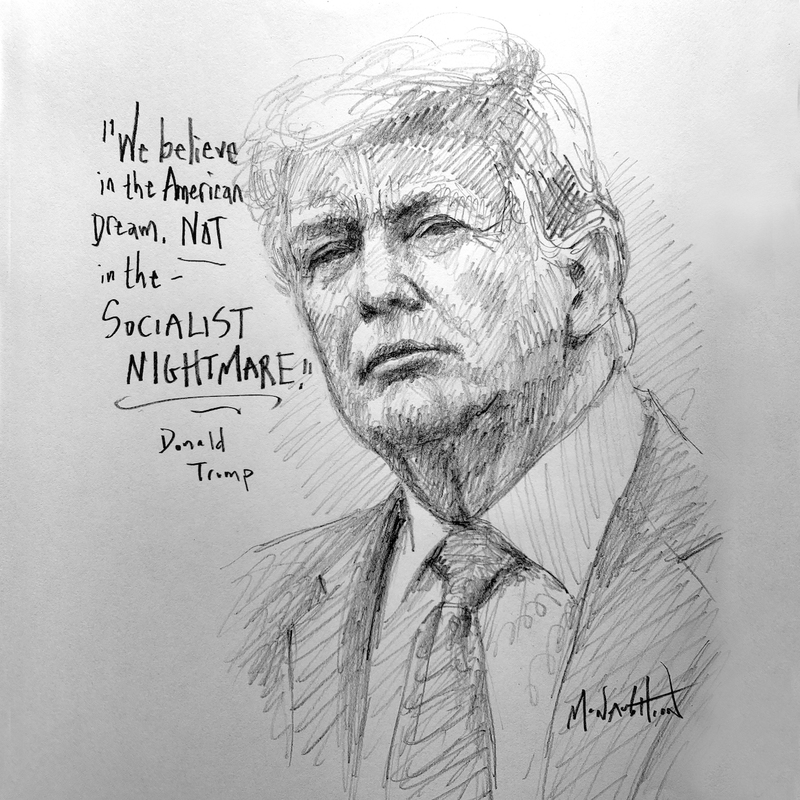 "We believe
in the American
Dream, NOT
in the -
SOCIALIST
NIGHTMARE!"
Donald
Trump
McNaughton